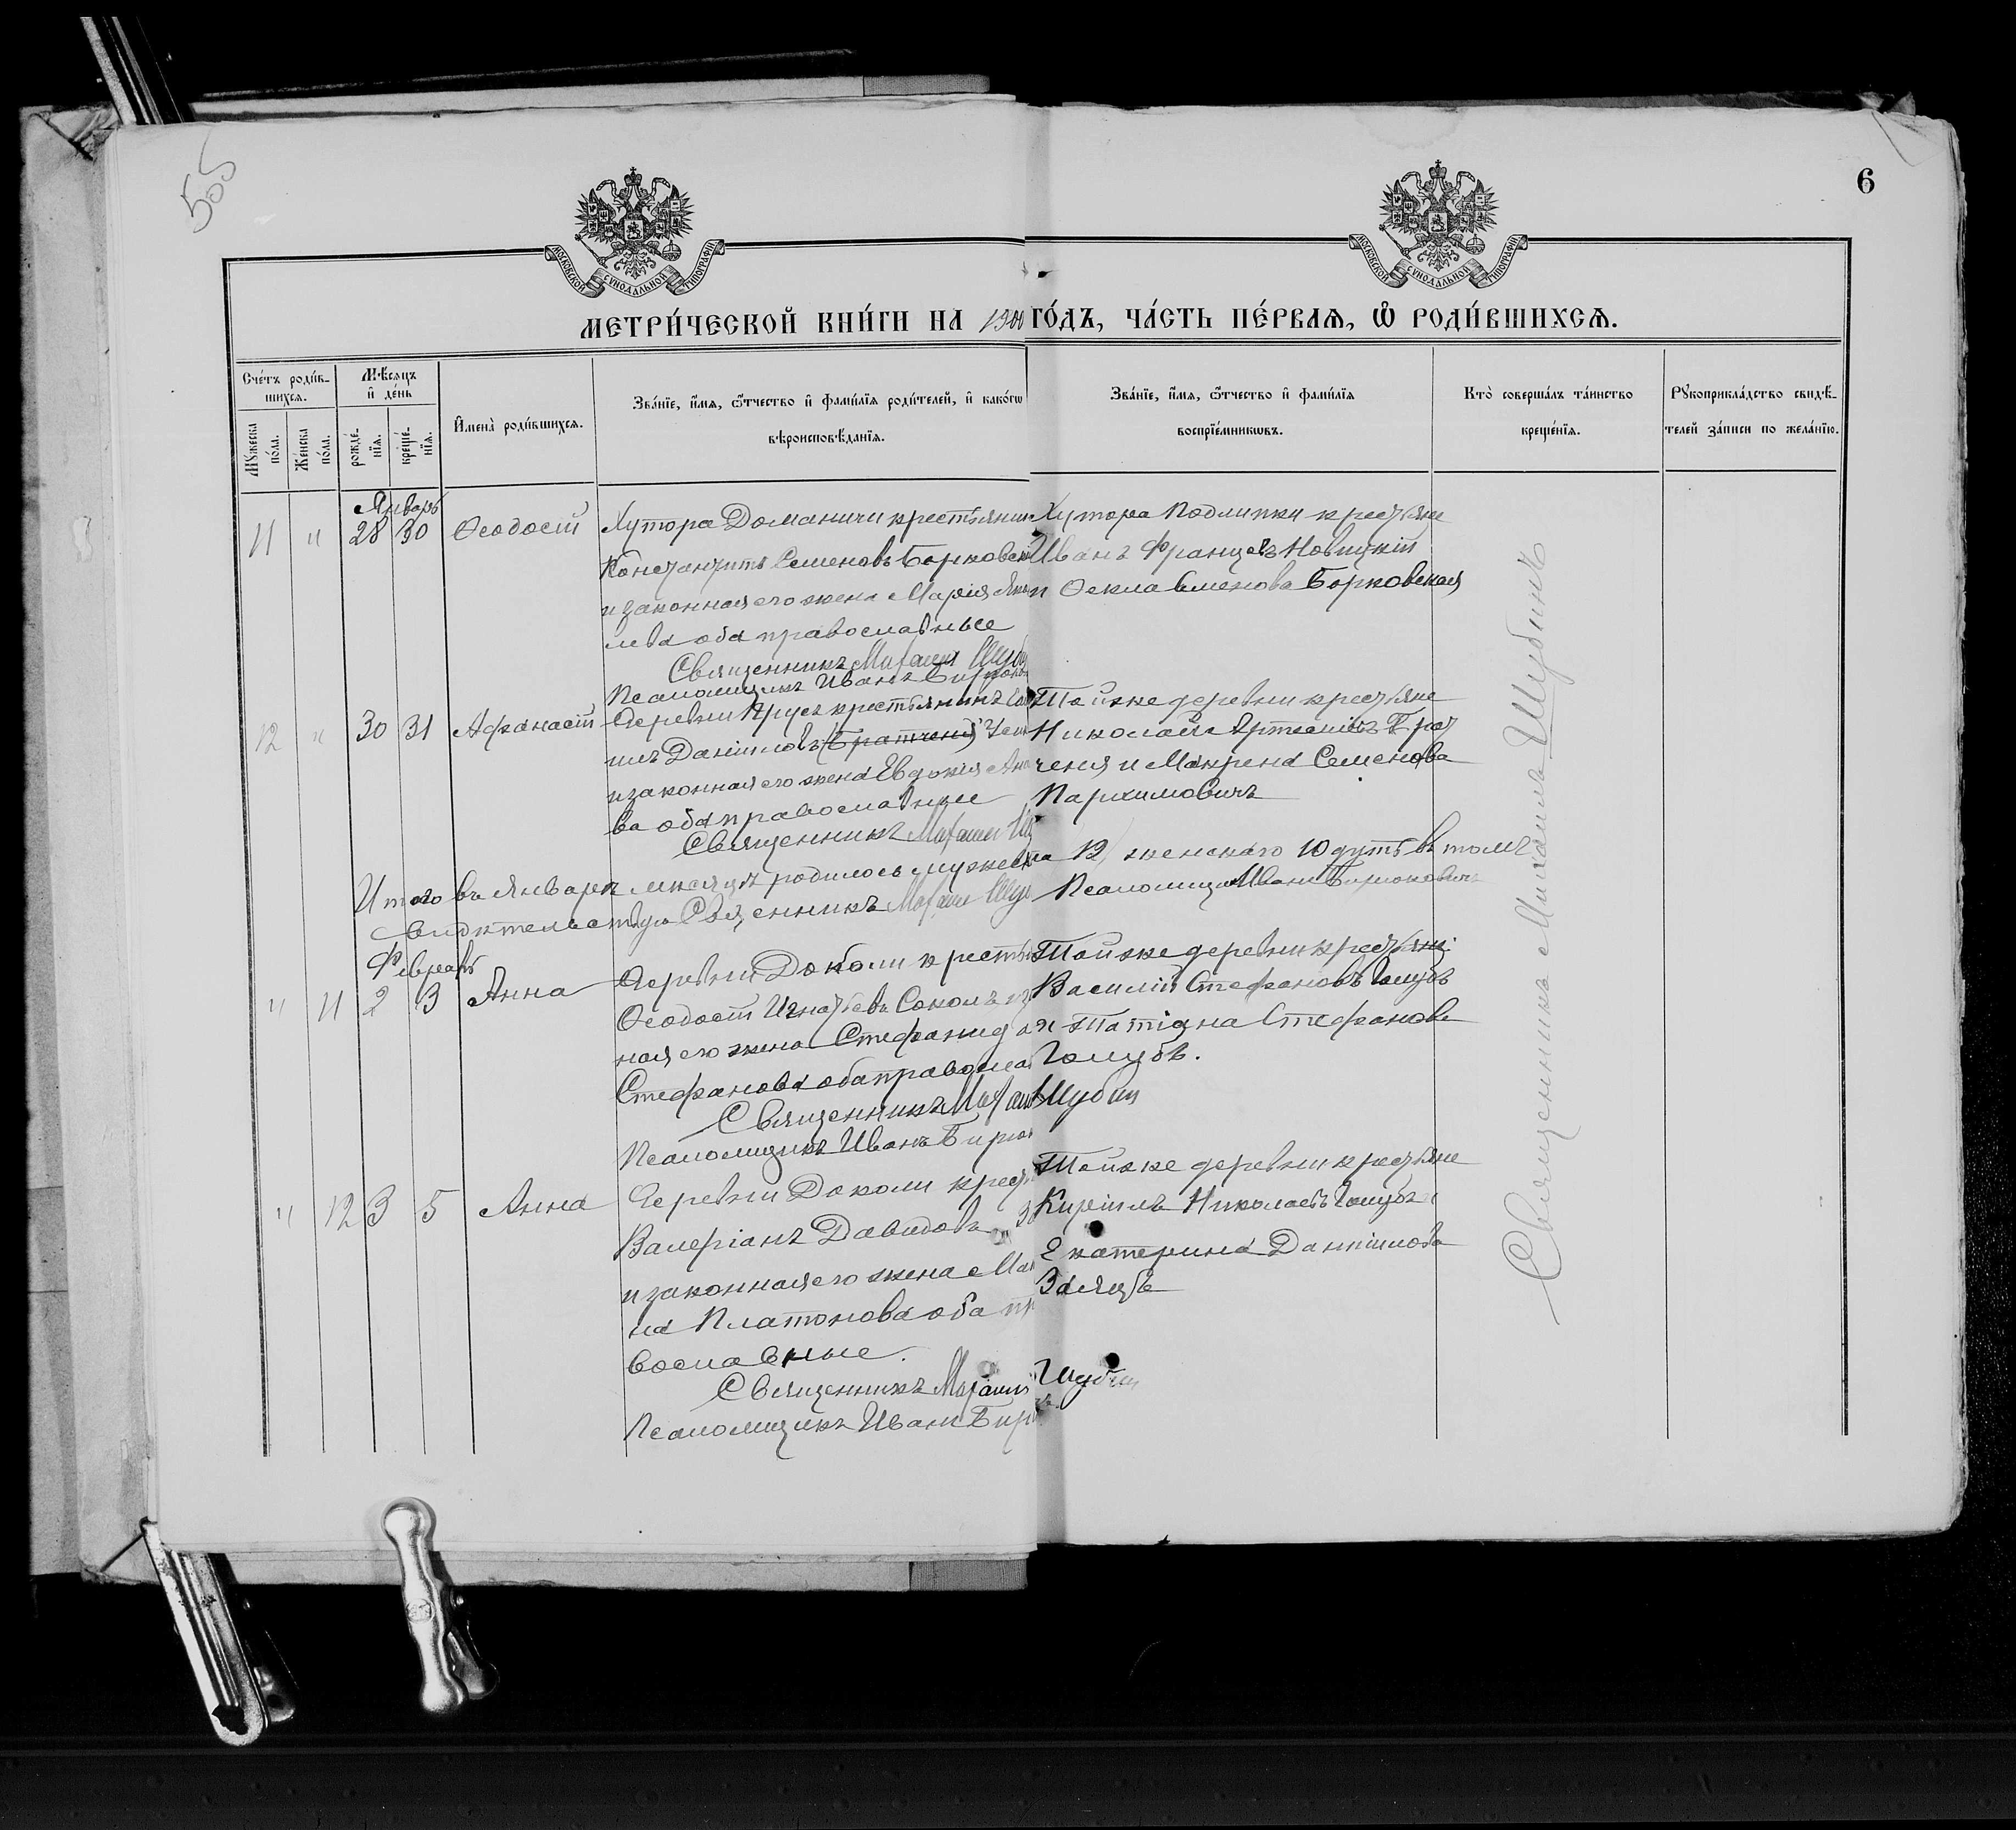 555
6
МОСКОВСКОЙ СѴНОДАЛЬНОЙ ТИПОГРАФІИ
МОСКОВСКОЙ СѴНОДАЛЬНОЙ ТИПОГРАФІИ
МЕТРИ́ЧЕСКОЙ КНИ́ГИ НА 1900 ГО́ДЪ, ЧА́СТЬ ПЕ́РВАѦ, Ѽ РОДИ́ВШИХСѦ.
Сче́тъ роди́в-
шихся.
Мꙋжеска по́ла.
Же́нска по́ла.
Мѣ́сяцъ
и҆ де́нь
рожде́-
нїя.
креще́-
нїя.
И҆мена̀ роди́вшихся.
Зва́нїе, и҆́мя, ѻ҆́тчество и҆ фами́лїя роди́телей, и҆ како́гѡ
вѣроисповѣ́данїя.
Зва́нїе, и҆́мя, ѻ҆́тчество и҆ фами́лїя
воспрїе́мникѡвъ.
Кто̀ соверша́лъ та́инство
креще́нїя.
Рꙋкоприкла́дство свидѣ́-
телей за́писи по жела́нїю.
Январь
11 " 28 30 Ѳеодосій
Хутора Доманичи крестьянин
Константинъ Семеновъ Борковск
и законная его жена Марія
лева оба православные
Священникъ Михаилъ Шуб
Псаломщикъ Иванъ Бирюко
Хутора Подлипки крестьяне
Иванъ Францевъ Новицкій
и Ѳекла Семенова Борковская
12 " 30 31 Афанасій
Деревни Прусъ крестьянинъ
Даніиловъ (Братченя)
и законная его жена Евдокія
ва оба православные
Священникъ Михаилъ Шу
Тойже деревни крестьяне
Николай Артемьевъ Брат
ченя и Макрена Семенова
Пархимовичъ
Итого въ Январѣ мѣсяцѣ родилось мужеска 12, женскаго 10 душъ въ томъ
свидѣтельствую Священникъ Михаилъ Шуб Псаломщикъ Иванъ Бирюковичъ
Февраль
" 11 2 3 Анна
Деревни Доколи кресть
Ѳеодосій Игнатьевъ Соколъ и з
ная его жена Стефанида
Стефанова оба правосла
Священникъ Михаилъ Шубин
Псаломщикъ Иванъ Бирю
Тойже деревни крестьяне
Василій Стефановъ Голубъ
и Татіяна Стефанова
Голубъ.
" 12 3 5 Анна
Деревни Доколи крест
Валеріанъ Давидовъ За
и законная его жена Ма
на Платонова оба пр
вославные.
Священникъ Михаилъ Шубин
Псаломщикъ Иванъ Бирю
Тойже деревни крестьяне
Кириллъ Николаевъ Голубъ и
Екатерина Даніилова
Заяцъ
Священникъ Михаилъ Шубинъ